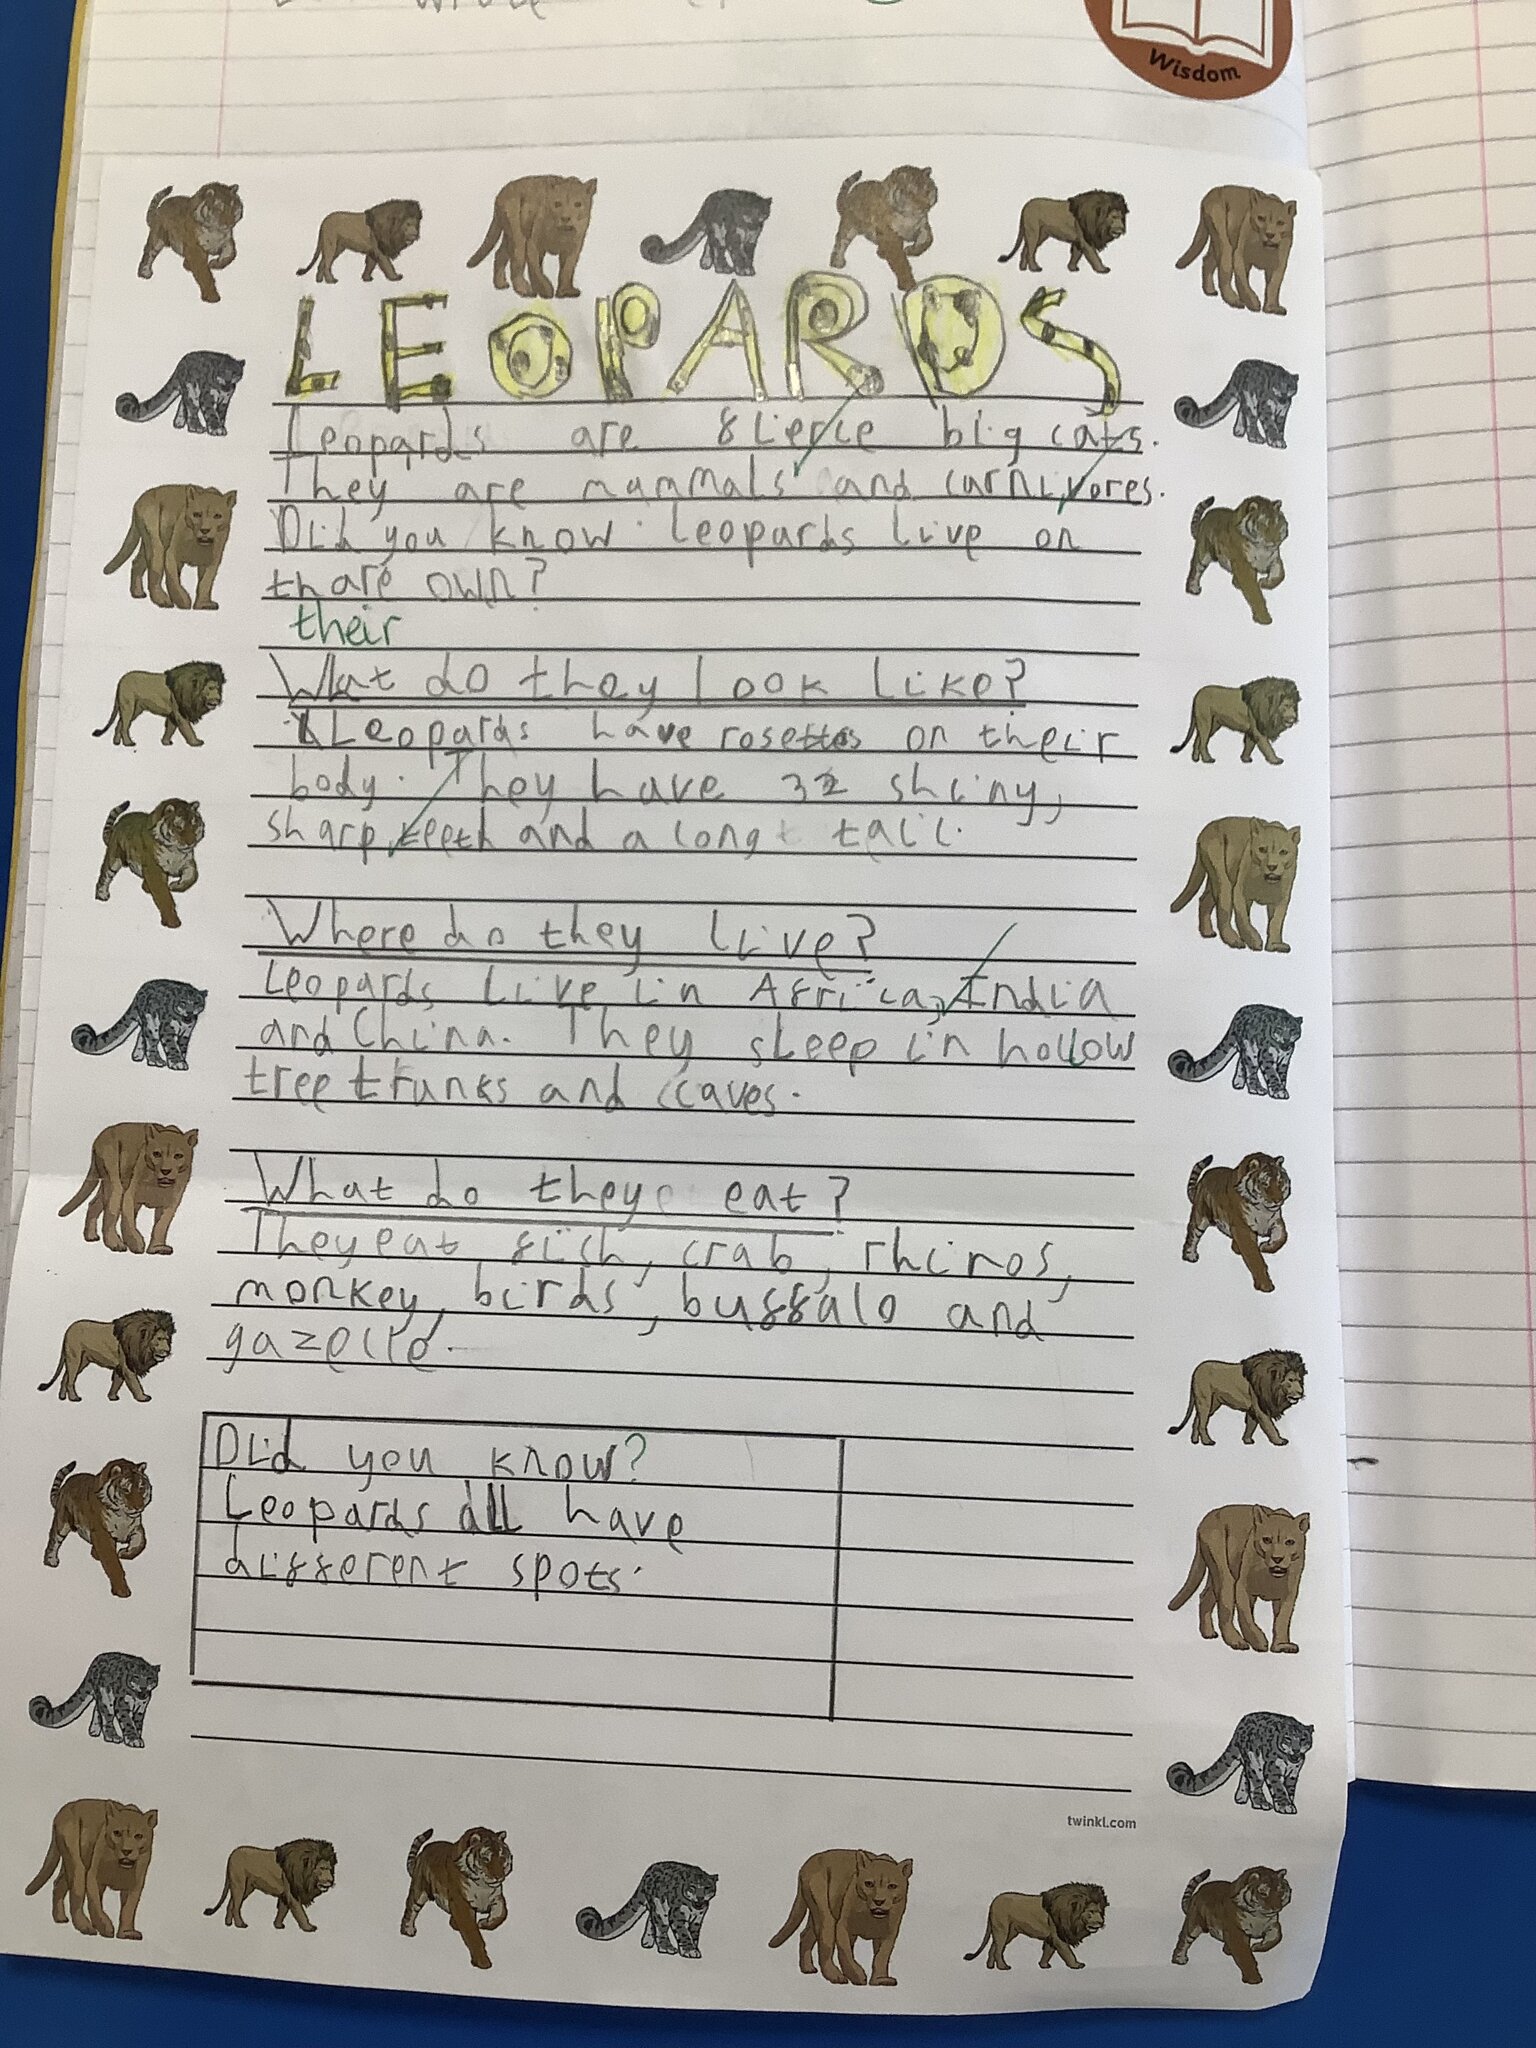 Wisdom
LEOPARDS
Leopards are fierce big cats.
They are mammals and carnivores.
Did you know leopards live on
thare own?
their
What do they look like?
Leopards have rosettes on their
body. They have 32 shiny,
sharp teeth and a long tail.
Where do they live?
Leopards live in Africa, India
and China. They sleep in hollow
tree trunks and caves.
What do they eat?
They eat fish, crab, rhinos,
monkey, birds, buffalo and
gazelle.
Did you know?
Leopards all have
different spots.
twinkl.com